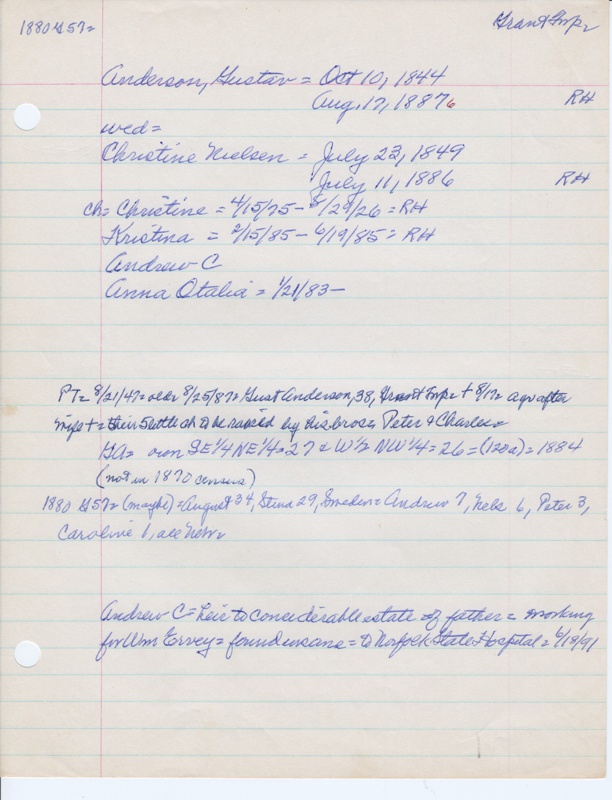 1880 #57=
Grant Twp=
Anderson, Gustav = Oct 10, 1844
Aug. 17, 18876 RH
wed=
Christine Nielsen = July 23, 1849
July 11, 1886 RH
ch= Christine = 4/15/75 - 8/29/26 = RH
Kristina = 2/15/85 - 6/19/85 = RH
Andrew C
Anna Otalia = 1/21/83 -
PT= 8/21/47= 8/25/87= Gust Anderson, 38, Grant Twp= + 8/17= a yr after
wife + = their 5 little ch to be raised by his bros= Peter & Charles=
own SE 1/4 NE 1/4= 27 & W 1/2 NW 1/4= 26 = (120a) = 1884
(not in 1870 census)
1880 #57= (maybe) = August 34, Stina 29, Sweden= Andrew 7, Nels 6, Peter 3,
Caroline 1, all Nebr=
Andrew C = heir to considerable estate of father = working
for Wm Ervey = found insane = to Norfolk State Hospital = 6/18/91